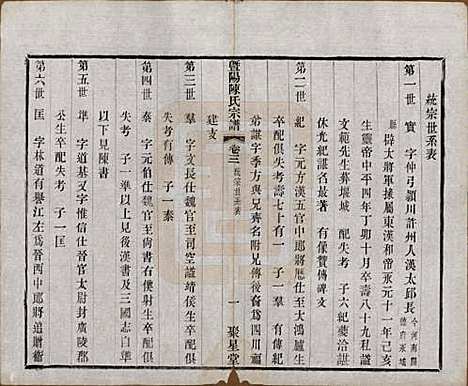 統宗世系表
第一世　寔　字仲弓潁川許州人漢太邱長今河南開德府永城
縣
辟大將軍掾屬東漢和帝永元十一年己亥
生靈帝中平四年丁卯十月卒壽八十九私諡
文範先生葬堰城　配失考　子六紀夔洽諶
休光紀諶名最著　有像贊傳碑文
第二世　紀　字元方漢五官中郎將歷仕大鴻臚生
卒配俱失考壽七十有一　子一羣　有傳紀
弟諶字季方與兄齊名附見傳後裔爲四川
建支
暨陽陳氏宗譜
卷三
統宗世系表
一
聚星堂
第三世　羣　字文長仕魏官至司空諡靖生卒配俱
失考有傳　子一泰
第四世　泰　字元伯仕魏官至尚書右僕射生卒配俱
失考　子一準以上見後漢書及三國志自準
以下見陳書
第五世　準　字道基又字惟信仕晉官太尉封廣陵郡
公生卒配失考　子一匡
第六世　匡　字林道有譽江左爲晉西中郎將追贈衞